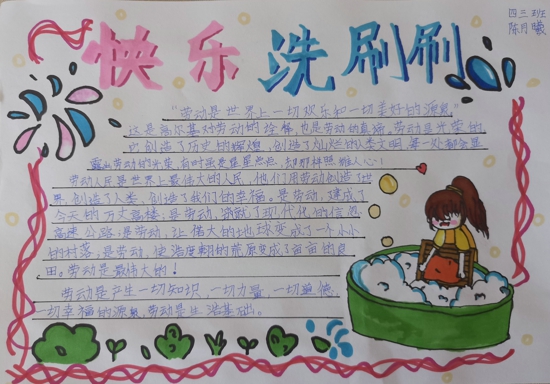 四三班
陈月曦
快乐洗刷刷
"劳动是世界上一切欢乐和一切美好的源泉"
这是高尔基对劳动的诠释,也是劳动的真谛,劳动是光荣的
史创造了历史的辉煌,创造了灿烂的人类文明,每一处都会显
露出劳动的光荣,有时虽是星星点点,却那样照耀人心!
劳动人民是世界上最伟大的人民,他们用劳动创造了世
界,创造了人类,创造了我们的幸福。是劳动,建成了
今天的万丈高楼;是劳动,筑就了现代化的信息
高速公路;是劳动,让偌大的地球变成了一个小小
的村落;是劳动,使浩瀚的荒原变成了亩亩的良
田。劳动是最伟大的!
劳动是产生一切知识,一切力量,一切道德,
一切幸福的源泉,劳动是生活基础。